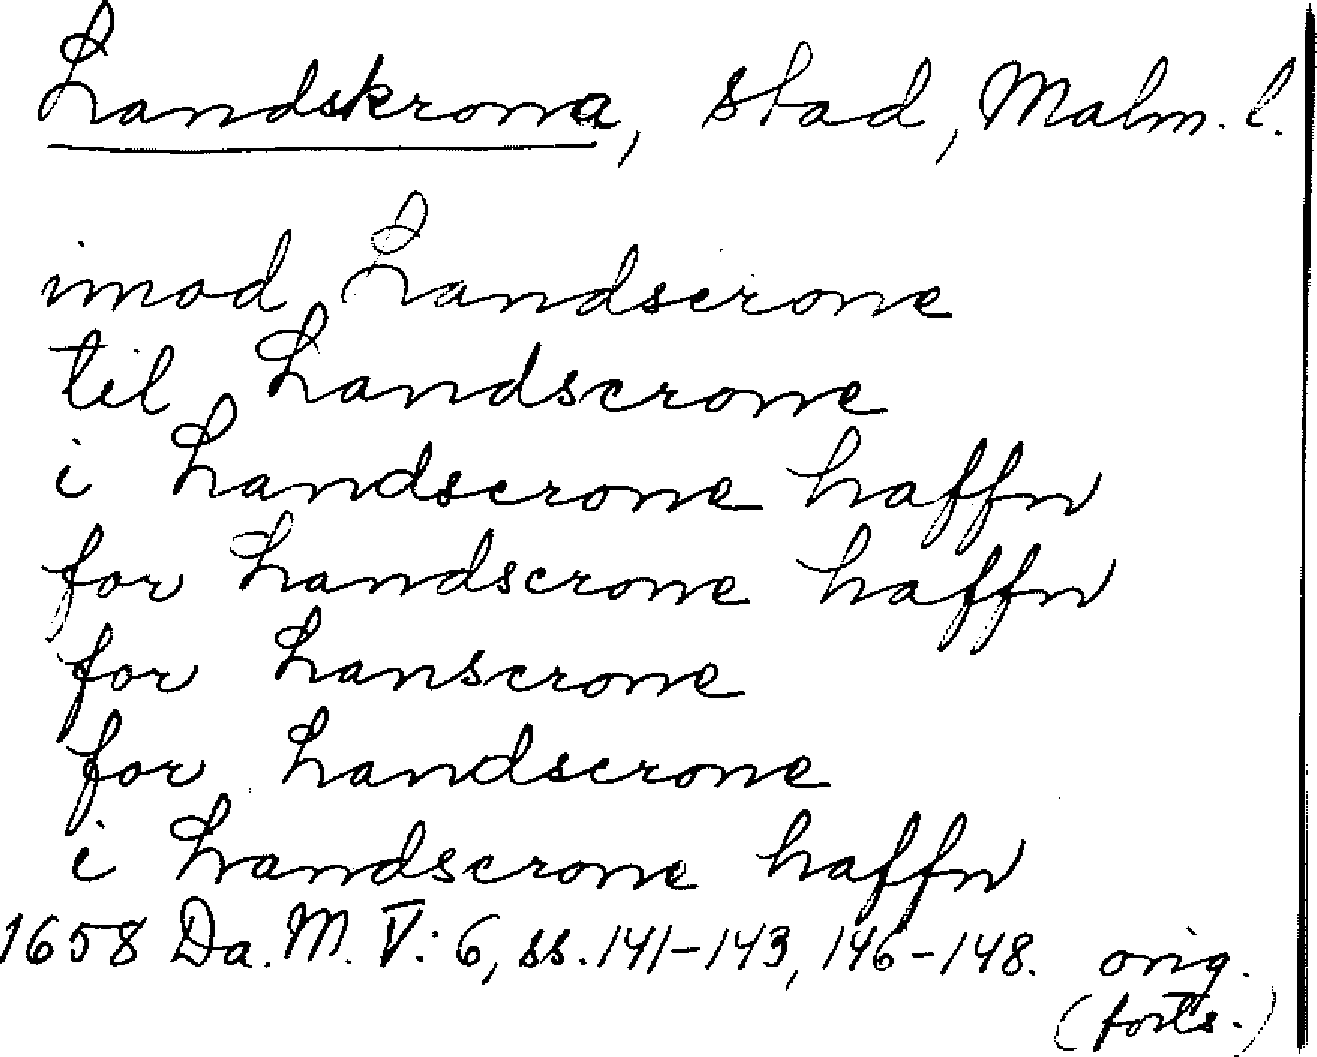 Landskrona, stad, Malm. l.
imod Landscrone
til Landscrone
i Landscrone haffn
for Landscrone haffn
for Lanscrone
for Landscrone
i Landscrone haffn
1658 Da. M. V: 6, ss. 141-143, 146-148. orig.
(forts.)